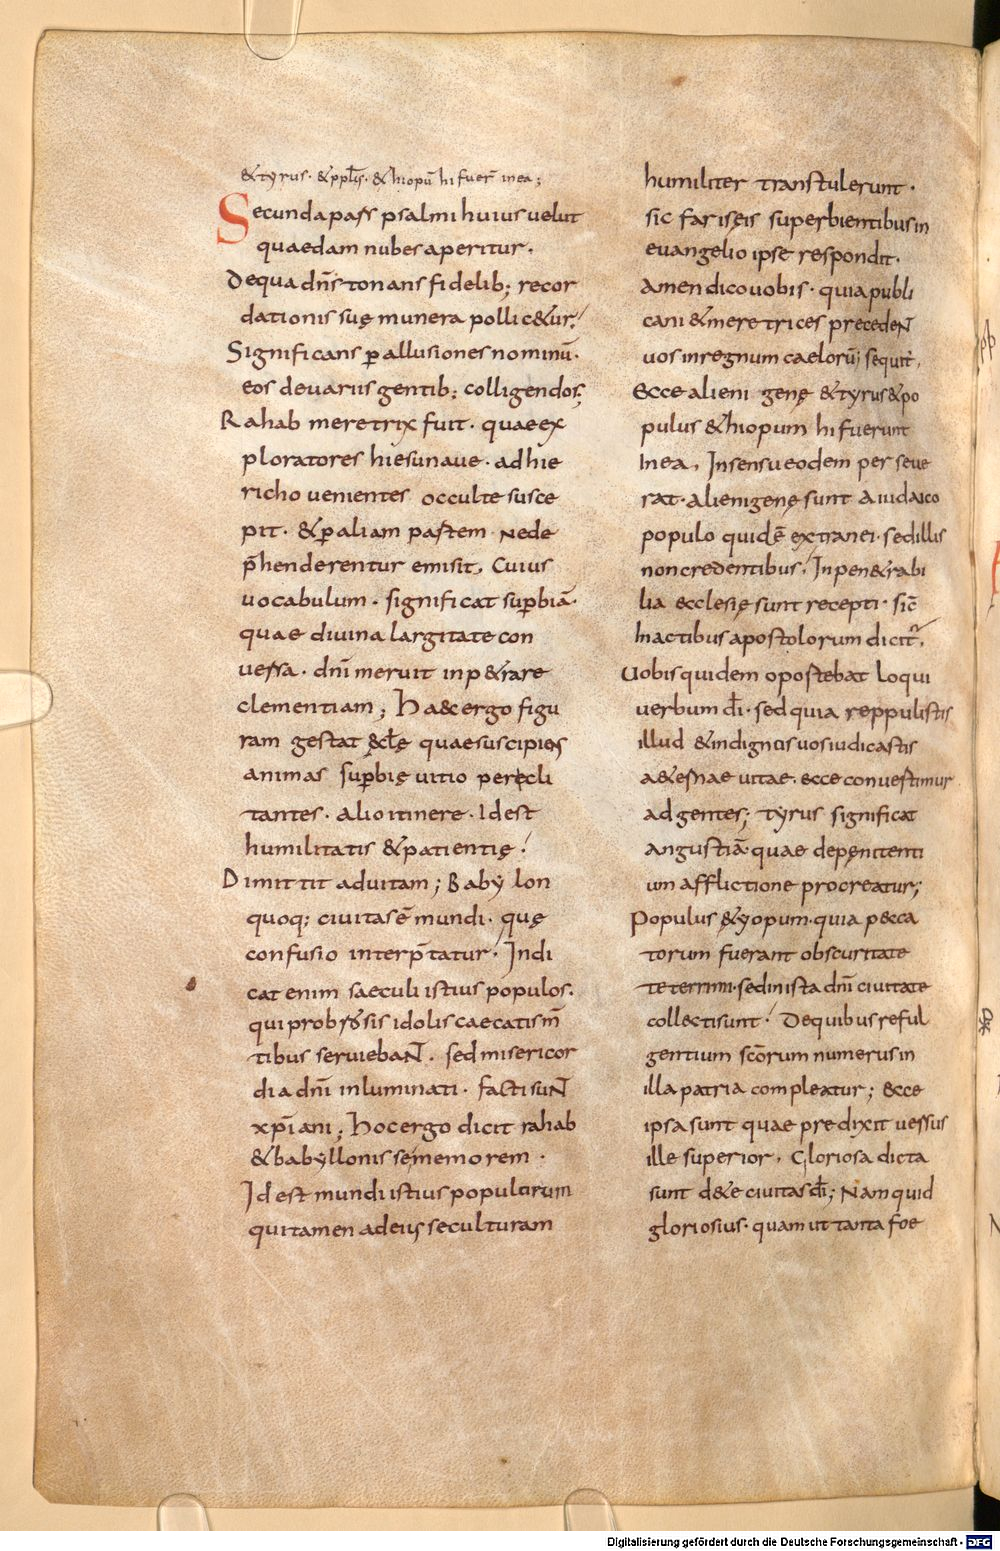 &tyrus· &ppl̅s· &hiopū hi fuer̅ inea;
Secunda pars psalmi huius uelut
quaedam nubes aperitur·
De qua dn̅s tonans fidelib; recor
dationis suę munera pollic&ur;
Significans p̱ allusiones nominū·
eos de uariis gentib; colligendos;
Rahab meretrix fuit· quae ex
ploratores hiesu naue· ad hie
richo uenientes occulte susce
pit· &p̱ aliam partem ne de
p̄henderentur emisit, Cuius
uocabulum· significat sup̱biā·
quae diuina largitate con
uersa· dn̅i meruit inp&rare
clementiam; Ha&c ergo figu
ram gestat ęcl̅ę quae suscipiens
animas sup̱bię uitio perecli
tantes· alio itinere· Idest
humilitatis &patientię·
Dimittit ad uitam; Babylon
quoq; ciuitas ē mundi· quę
confusio interp̄tatur· Indi
cat enim saeculi istius populos·
qui probrosis idolis caecatis m̄
tibus seruiebaNT· sed misericor
dia dn̅i inluminati· facti suNT
xp̅iani; Hoc ergo dicit rahab
&babyllonis se memorem·
Id est mundi istius populorum
qui tamen ad eius se culturam
humiliter transtulerunt·
sic fariseis superbientibus in
euangelio ipse respondit·
Amen dico uobis· quia publi
cani &meretrices precedeNT
uos in regnum caelorū; sequit̅,
Ecce alieni genę &tyrus &po
pulus &hiopum hi fuerunt
In ea, In sensu eodem perseue
rat· alienigenę sunt A iudaico
populo quidē extranei· sed illis
non credentibus· In pen&rabi
lia ecclesię sunt recepti· sic̅
In actibus apostolorum dicit̅,
Uobis quidem oportebat loqui
uerbum dī· sed quia reppulistis
illud &indignos uos iudicastis
a&ernae uitae· ecce conuertimur
ad gentes; Tyrus significat
angustiā· quae de pęnitenti
um afflictione procreatur;
Populus &yopum· quia pecca
torum fuerant obscuritate
teterrimi· sed in ista dn̅i ciuitate
collecti sunt· De quibus reful
gentium sc̅orum numerus in
illa patria compleatur; &cce
ipsa sunt quae predixit uersus
ille superior, Gloriosa dicta
sunt de te ciuitas dī; Nam quid
gloriosius· quam ut tanta foe
Digitalisierung gefördert durch die Deutsche Forschungsgemeinschaft · DFG